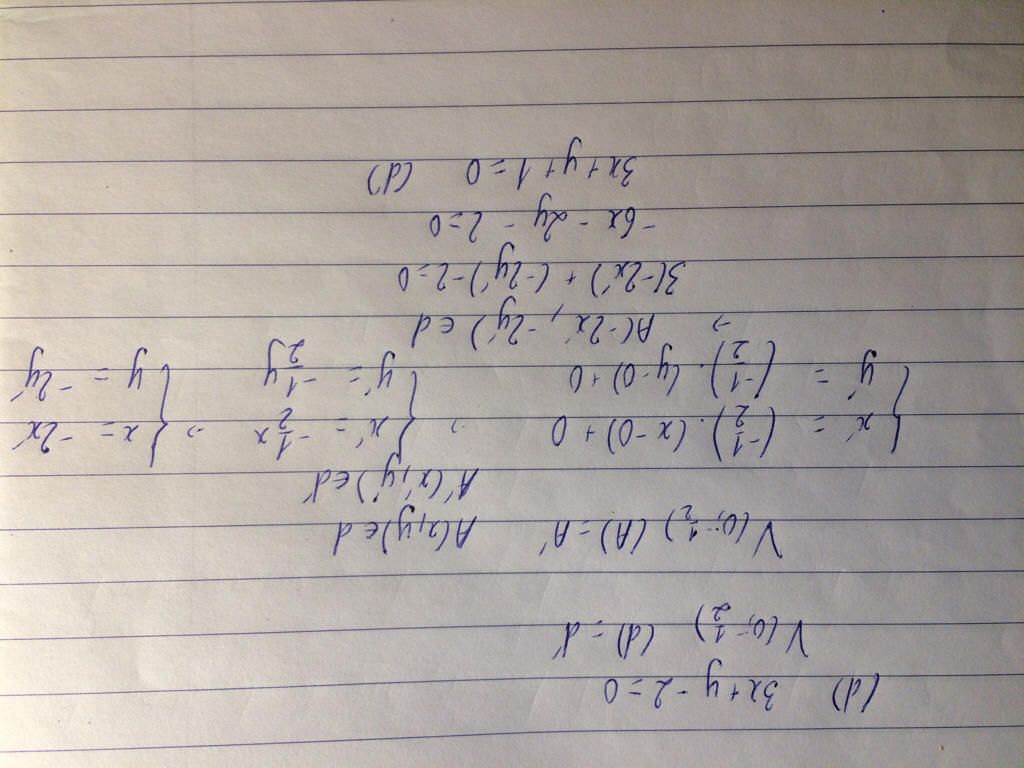 (d) 3x + y - 2 = 0
V(0, -1/2) (d) = d'
V(0, -1/2) (A) = A' A(x, y) ∈ d
A'(x', y') ∈ d'
{ x' = (-1/2) . (x - 0) + 0 → { x' = -1/2 x → { x = -2x'
{ y' = (-1/2) . (y - 0) + 0 { y' = -1/2 y { y = -2y'
→ A(-2x', -2y') ∈ d
3(-2x') + (-2y') - 2 = 0
-6x - 2y - 2 = 0
3x + y + 1 = 0 (d')